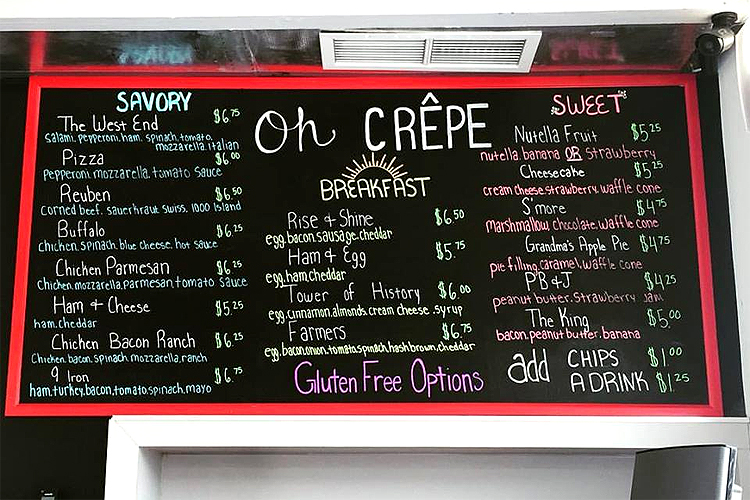 SAVORY
The West End $6.75
salami, pepperoni, ham, spinach, tomato,
mozzarella, italian
Pizza $6.00
pepperoni, mozzarella, tomato sauce
Reuben $6.50
corned beef, sauerkraut, swiss, 1000 island
Buffalo $6.25
chicken, spinach, blue cheese, hot sauce
Chicken Parmesan $6.25
chicken, mozzarella, parmesan, tomato sauce
Ham & Cheese $5.25
ham, cheddar
Chicken Bacon Ranch $6.25
chicken, bacon, spinach, mozzarella, ranch
9 Iron $6.75
ham, turkey, bacon, tomato, spinach, mayo
Oh CRÊPE
BREAKFAST
Rise & Shine $6.50
egg, bacon, sausage, cheddar
Ham & Egg $5.75
egg, ham, cheddar
Tower of History $6.00
egg, cinnamon, almonds, cream cheese, syrup
Farmers $6.75
egg, bacon, onion, tomato, spinach, hashbrown, cheddar
Gluten Free Options
SWEET
Nutella Fruit $5.25
nutella, banana OR strawberry
Cheesecake $5.25
cream cheese, strawberry, waffle cone
S'more $4.75
marshmallow, chocolate, waffle cone
Grandma's Apple Pie $4.75
pie filling, caramel, waffle cone
PB & J $4.25
peanut butter, strawberry jam
The King $5.00
bacon, peanut butter, banana
add CHIPS $1.00
A DRINK $1.25